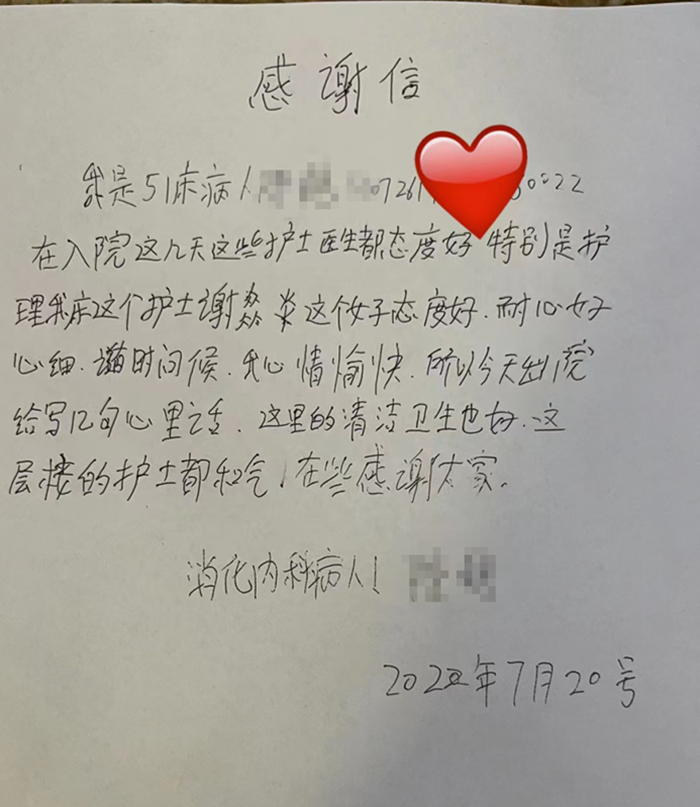 感谢信
我是51床病人 0726 0022
在入院这几天这些护士医生都态度好 特别是护
理我床这个护士谢焱焱这个女子态度好.耐心好
心细. 时问候.我心情愉快.所以今天出院
给写几句心里话.这里的清洁卫生也好.这
层楼的护士都和气,在些感谢大家.
消化内科病人!
2022年7月20号